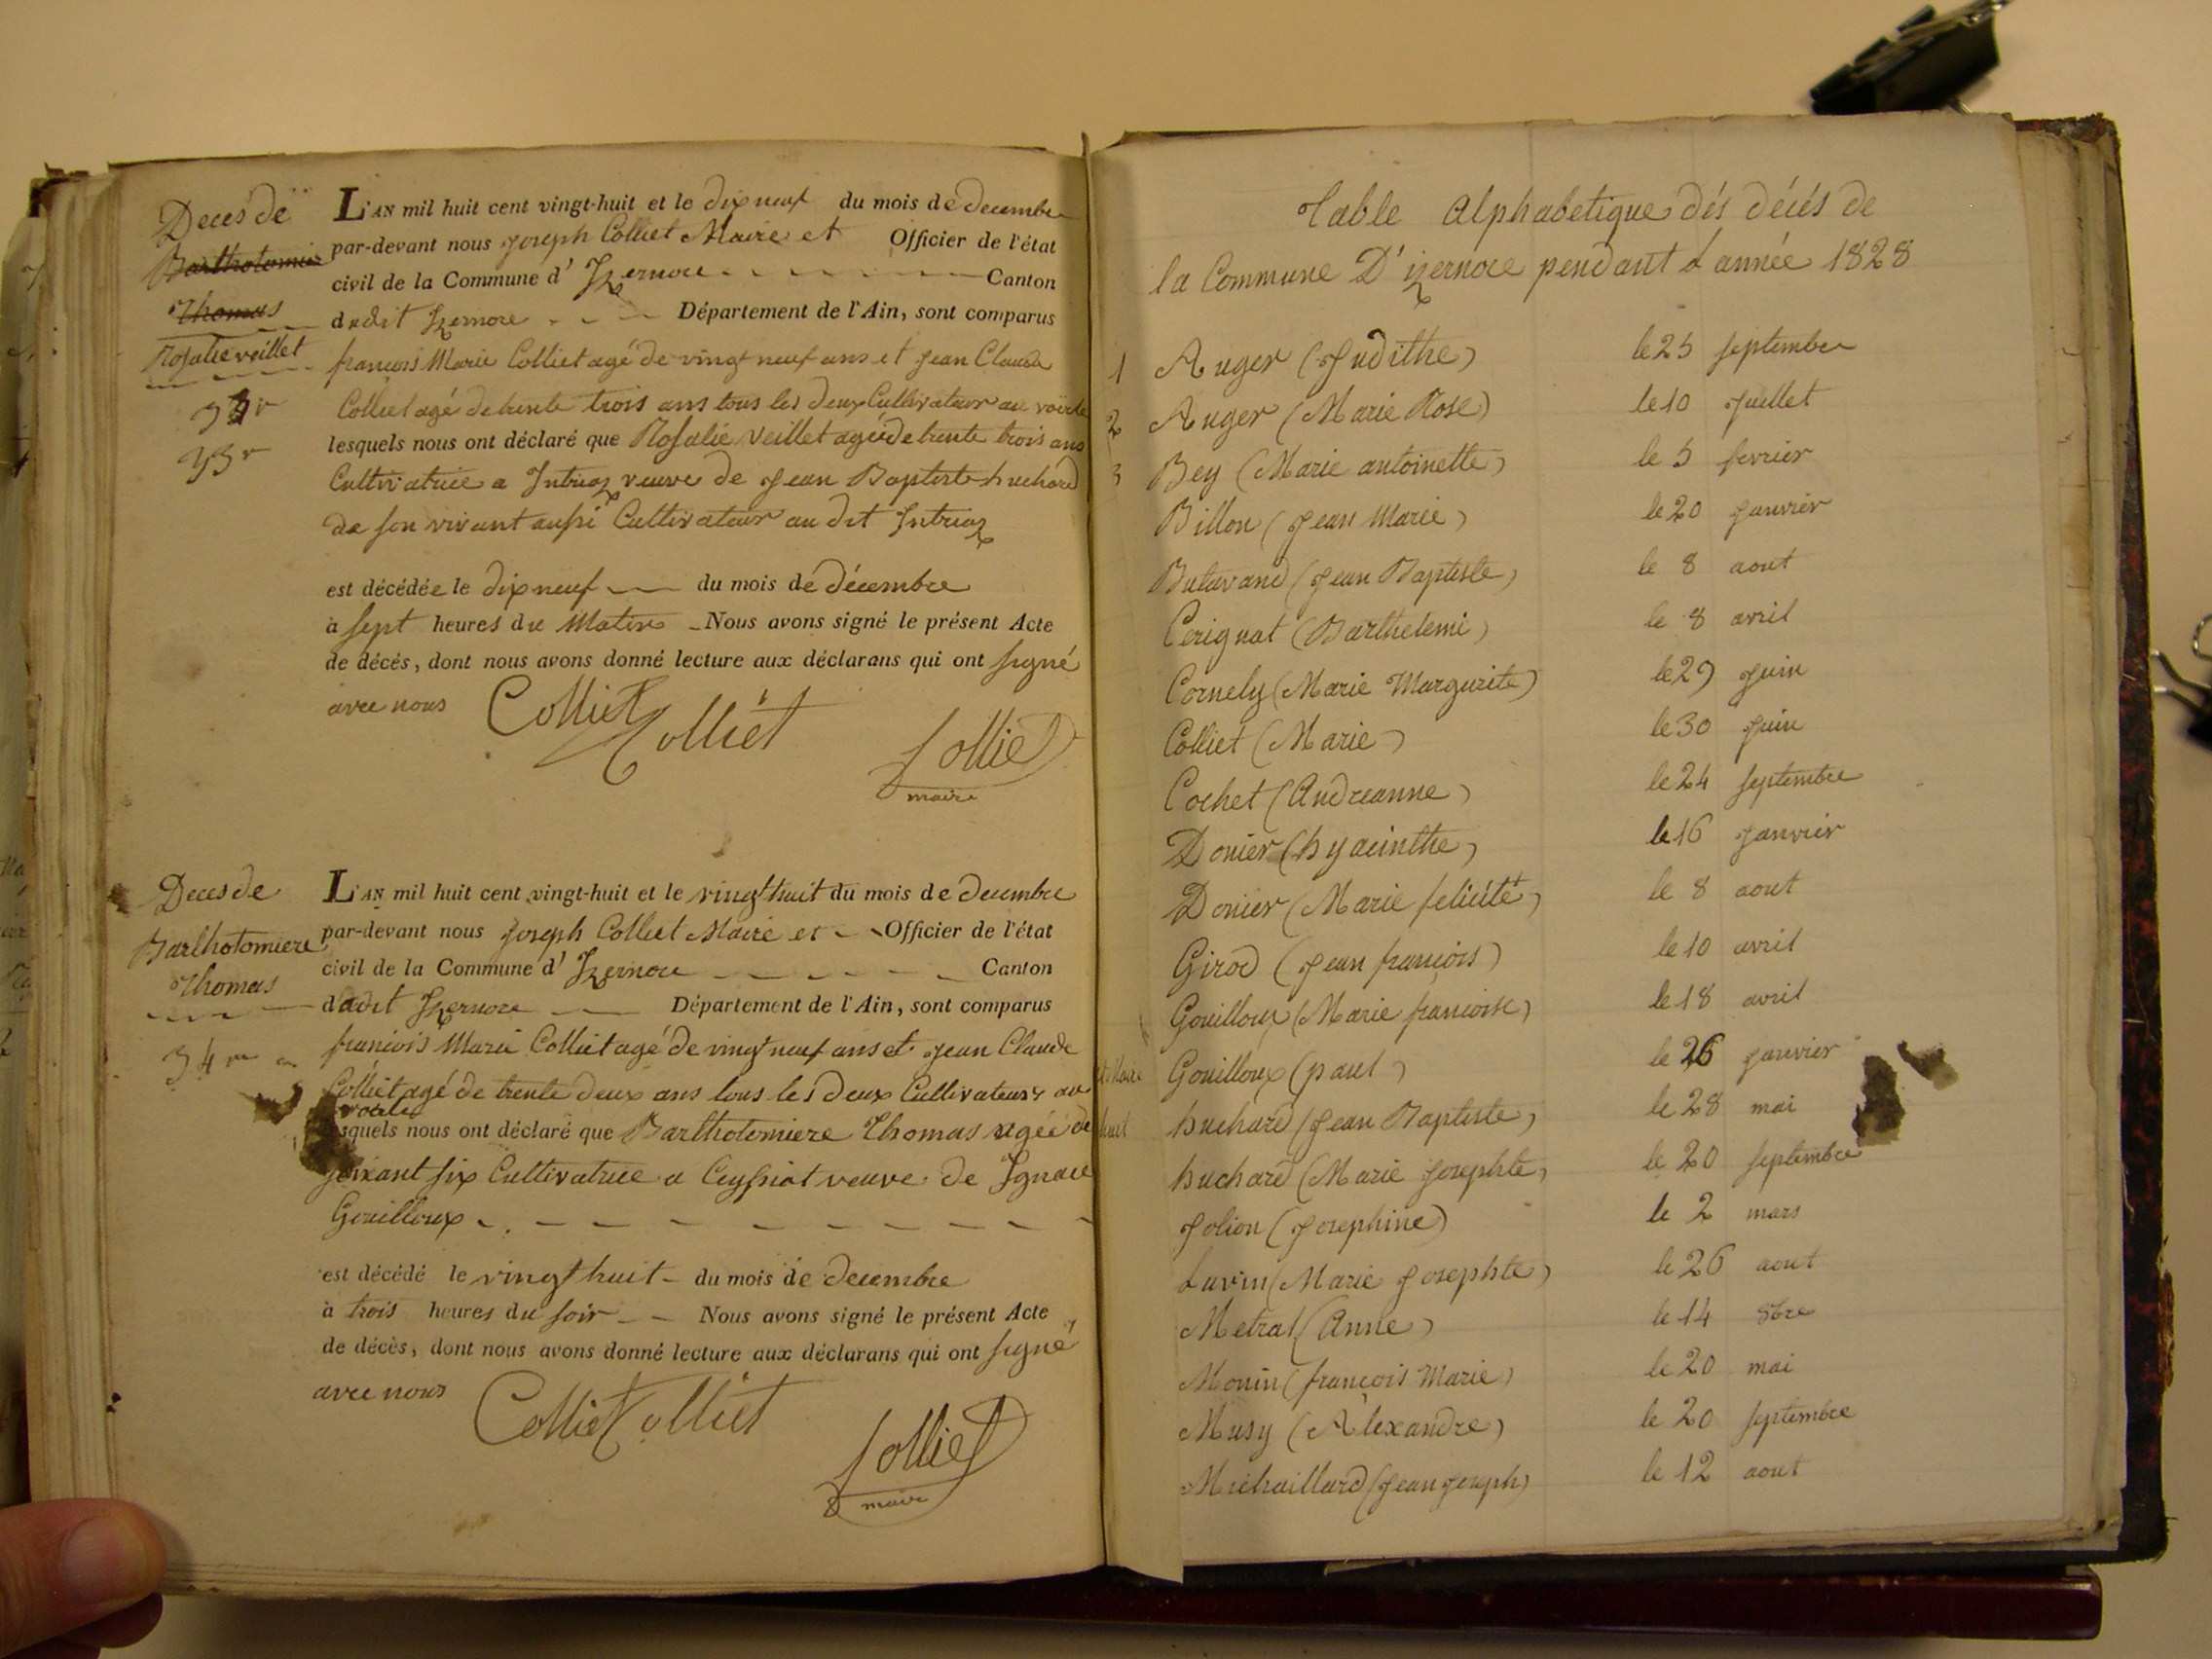 Deces de
Bartholomiere
Thomas
Rosalie veillet
33e
L'AN mil huit cent vingt-huit et le dix neuf du mois de decembre
par-devant nous Joseph Colliet Maire et Officier de l'état
civil de la Commune d' Izernore Canton
dudit Izernore Département de l'Ain, sont comparus
francois Marie Colliet agé de vingt neuf ans et Jean Claude
Colliet agé de trente trois ans tous les deux Cultivateur au voerle
lesquels nous ont déclaré que Rosalie Veillet agée de trente trois ans
Cultivatrice a Intriaz veuve de Jean Baptiste huchard
de son vivant aussi Cultivateur au dit Intriaz
est décédée le dix neuf du mois de décembre
à sept heures du Matin Nous avons signé le présent Acte
de décès, dont nous avons donné lecture aux déclarans qui ont signé
avec nous Colliet Colliet
Colliet
maire
Deces de
Bartholomiere
Thomas
34me
L'AN mil huit cent vingt-huit et le vingt huit du mois de decembre
par-devant nous Joseph Colliet Maire et Officier de l'état
civil de la Commune d' Izernore Canton
dudit Izernore Département de l'Ain, sont comparus
francois Marie Colliet agé de vingt neuf ans et Jean Claude
Colliet agé de trente deux ans tous les deux Cultivateurs au
voerle
lesquels nous ont déclaré que Bartholomiere Thomas agée de
soixant six Cultivatrice a Ceyssiat veuve de Ignace
Gouilloux
est décédé le vingt huit du mois de decembre
à trois heures du soir Nous avons signé le présent Acte
de décès, dont nous avons donné lecture aux déclarans qui ont signé
avec nous Colliet Colliet
Colliet
maire
Table Alphabetique dés décés de
la Commune D'izernore pendant L'année 1828
1 Auger (Judithe) le 25 septembre
2 Auger (Marie Rose) le 10 Juillet
3 Bey (Marie antoinette) le 5 fevrier
Billon (Jean Marie) le 20 Janvier
Butavand (Jean Baptiste) le 8 aout
Cerignat (Barthelemi) le 8 avril
Cornely (Marie Margurite) le 29 Juin
Colliet (Marie) le 30 Juin
Cochet (Andreanne) le 24 septembre
Donier (hyacinthe) le 16 Janvier
Donier (Marie felicité) le 8 aout
Girod (Jean francois) le 10 avril
Gouilloux (Marie francoise) le 18 avril
Gouilloux (paul) le 26 Janvier
huchard (Jean Baptiste) le 28 mai
huchard (Marie Josephte) le 20 septembre
Jolion (Josephine) le 2 mars
Luvin (Marie Josephte) le 26 aout
Metral (Anne) le 14 8bre
Monin (francois Marie) le 20 mai
Musy (Alexandre) le 20 septembre
Michaillard (Jean Joseph) le 12 aout